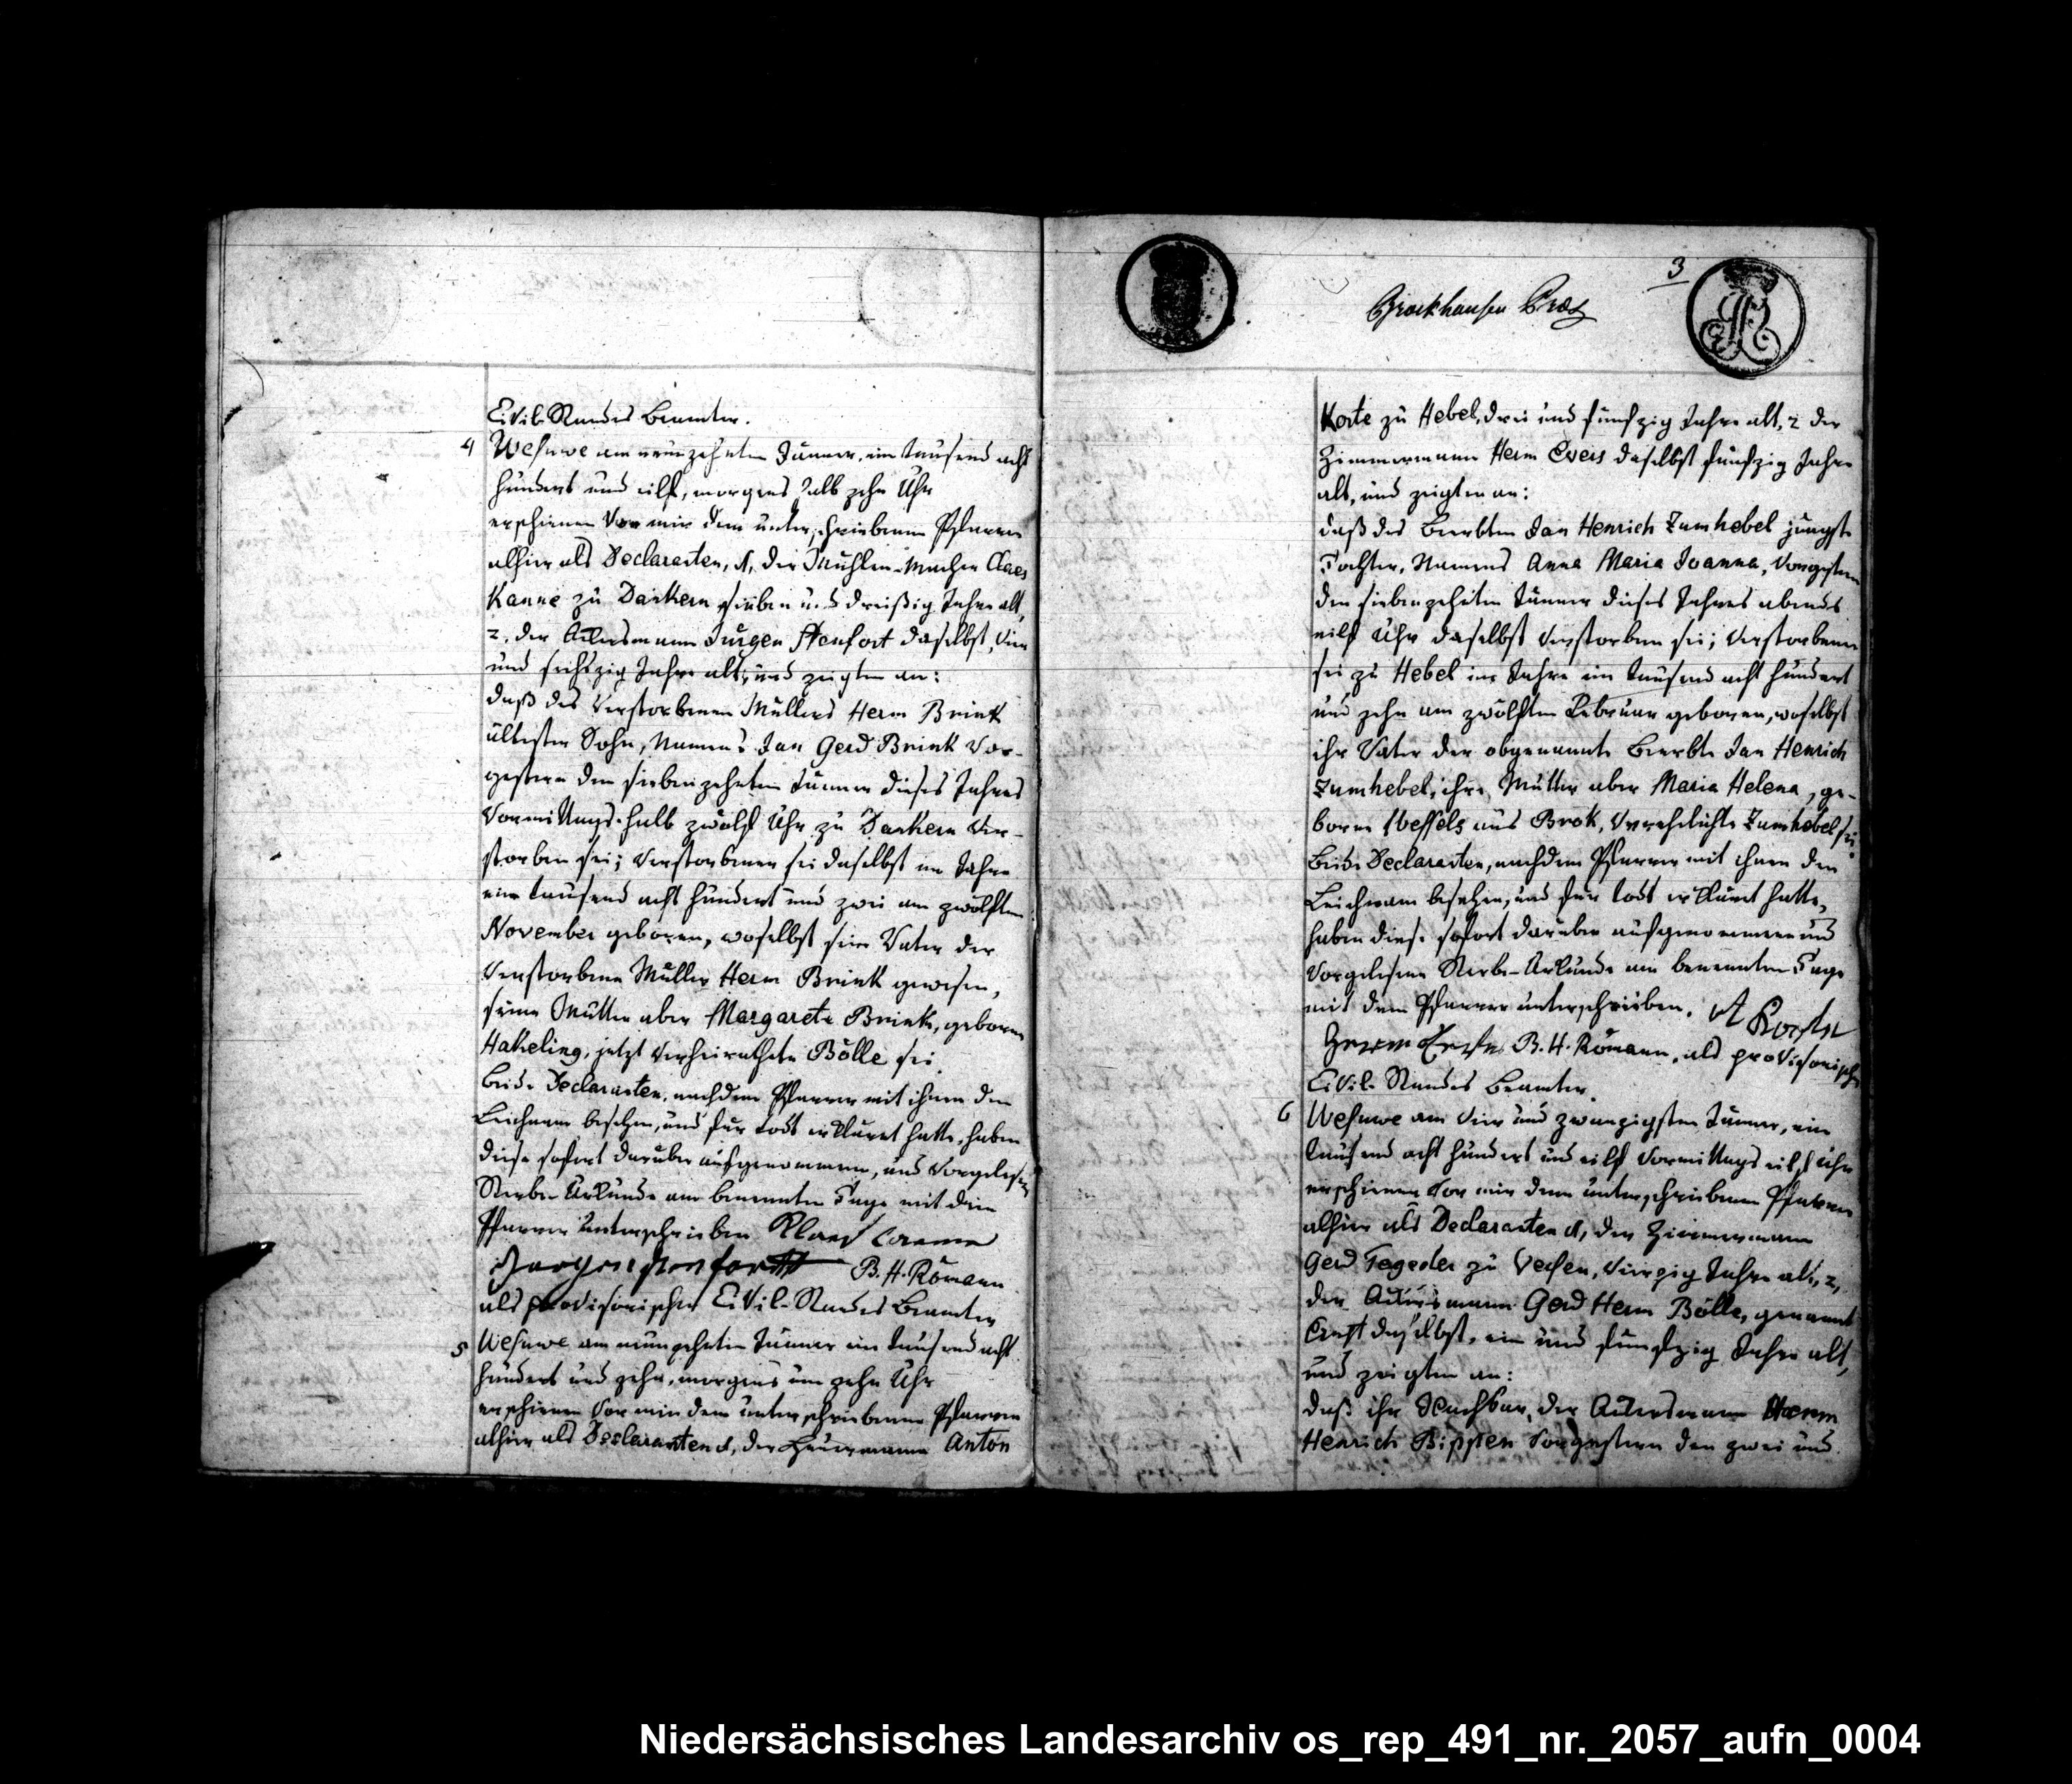 Civil-Standes Beamter.
4 Wesuwe am neunzehnten Jänner, ein tausend acht
hundert und eilf, morgens halb zehn Uhr
erschienen vor mir dem unterschriebenen Pfarrer
alhier als Declaranten, 1, der Mühlen-Macher Claes
Kanne zu Dankern sieben und dreißig Jahre alt,
2. der Ackersmann Jürgen Stenfort daselbst, vier
und sechszig Jahre alt; und zeigten an:
daß des verstorbenen Müllers Herm Brink
ältester Sohn, Namens Jan Gerd Brink vor-
gestern den siebenzehnten Jänner dieses Jahres
Vormittags halb zwölf Uhr zu Dankern ver-
storben sei; verstorbener sei daselbst im Jahre
ein tausend acht hundert und zwei am zwölften
November geboren, woselbst sein Vater der
verstorbene Müller Herm Brink gewesen,
seine Mutter aber Margareta Brink, geborne
Hakeling, jetzt verheirathete Bölle sei.
beide Declaranten, nachdem Pfarrer mit ihnen den
Leichnam besehen, und für todt erkläret hatte, haben
diese sofort darüber aufgenommene, und vorgelesene
Sterbe-Urkunde am benennten Tage mit dem
Pfarrer unterschrieben Klaas
B. H. Römann
als provisorischer Civil-Standes Beamter
5 Wesuwe am neunzehnten Jänner ein tausend acht
hundert und zehn, morgens um zehn Uhr
erschienen vor mir dem unterschriebenen Pfarrer
alhier als Declaranten 1, der Heuermann Anton
Brockhausen
3
Korte zu Hebel, drei und fünfzig Jahre alt, 2 der
Zimmermann Herm Evers daselbst fünfzig Jahre
alt, und zeigten an:
daß des Beerbten Jan Henrich Zumhebel jüngste
Tochter, Namens Anna Maria Joanna, vorgestern
den siebenzehnten Jänner dieses Jahres abends
eilf Uhr daselbst verstorben sei; verstorbene
sei zu Hebel im Jahre ein tausend acht hundert
und zehn am zwölften Februar geboren, woselbst
ihr Vater der obgenannte Beerbte Jan Henrich
Zumhebel, ihre Mutter aber Maria Helena, ge-
borne Wessels aus Brok, verehelichte Zumhebel sei.
beide Declaranten, nachdem Pfarrer mit ihnen den
Leichnam besehen, und für todt erkläret hatte,
haben diese sofort darüber aufgenommene und
vorgelesene Sterbe-Urkunde am benennten Tage
mit dem Pfarrer unterschrieben. A Korte
Herm Evers B. H. Römann, als provisorischer
Civil-Standes Beamter.
6 Wesuwe am vier und zwanzigsten Jänner, ein
tausend acht hundert und eilf Vormittags eilf Uhr
erschienen vor mir dem unterschriebenen Pfarrer
alhier als Declaranten 1, der Zimmermann
Gerd Tegeder zu Versen, vierzig Jahre alt, 2,
der Ackersmann Gerd Herm Bölle, genannt
Ernst daselbst, ein und fünfzig Jahre alt,
und zeigten an:
daß ihr Nachbar, der Ackersmann Herm
Henrich Bippen vorgestern den zwei und
Niedersächsisches Landesarchiv os_rep_491_nr._2057_aufn_0004